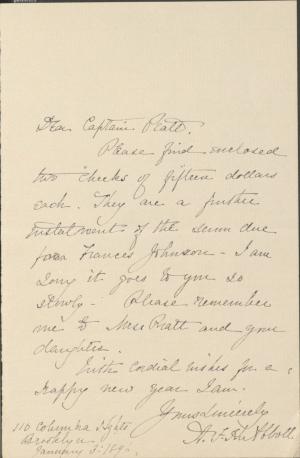 Dear Captain Pratt.
Please find enclosed
two checks of fifteen dollars
each. They are a further
instalment of the sum due
from Frances Johnson - I am
sorry it goes to you so
slowly - Please remember
me to Mrs Pratt and your
daughter.
With cordial wishes for a
happy new year I am.
Yours Sincerely
Abbott.
110 Columbia Hghts
Brooklyn.
January 3. 189